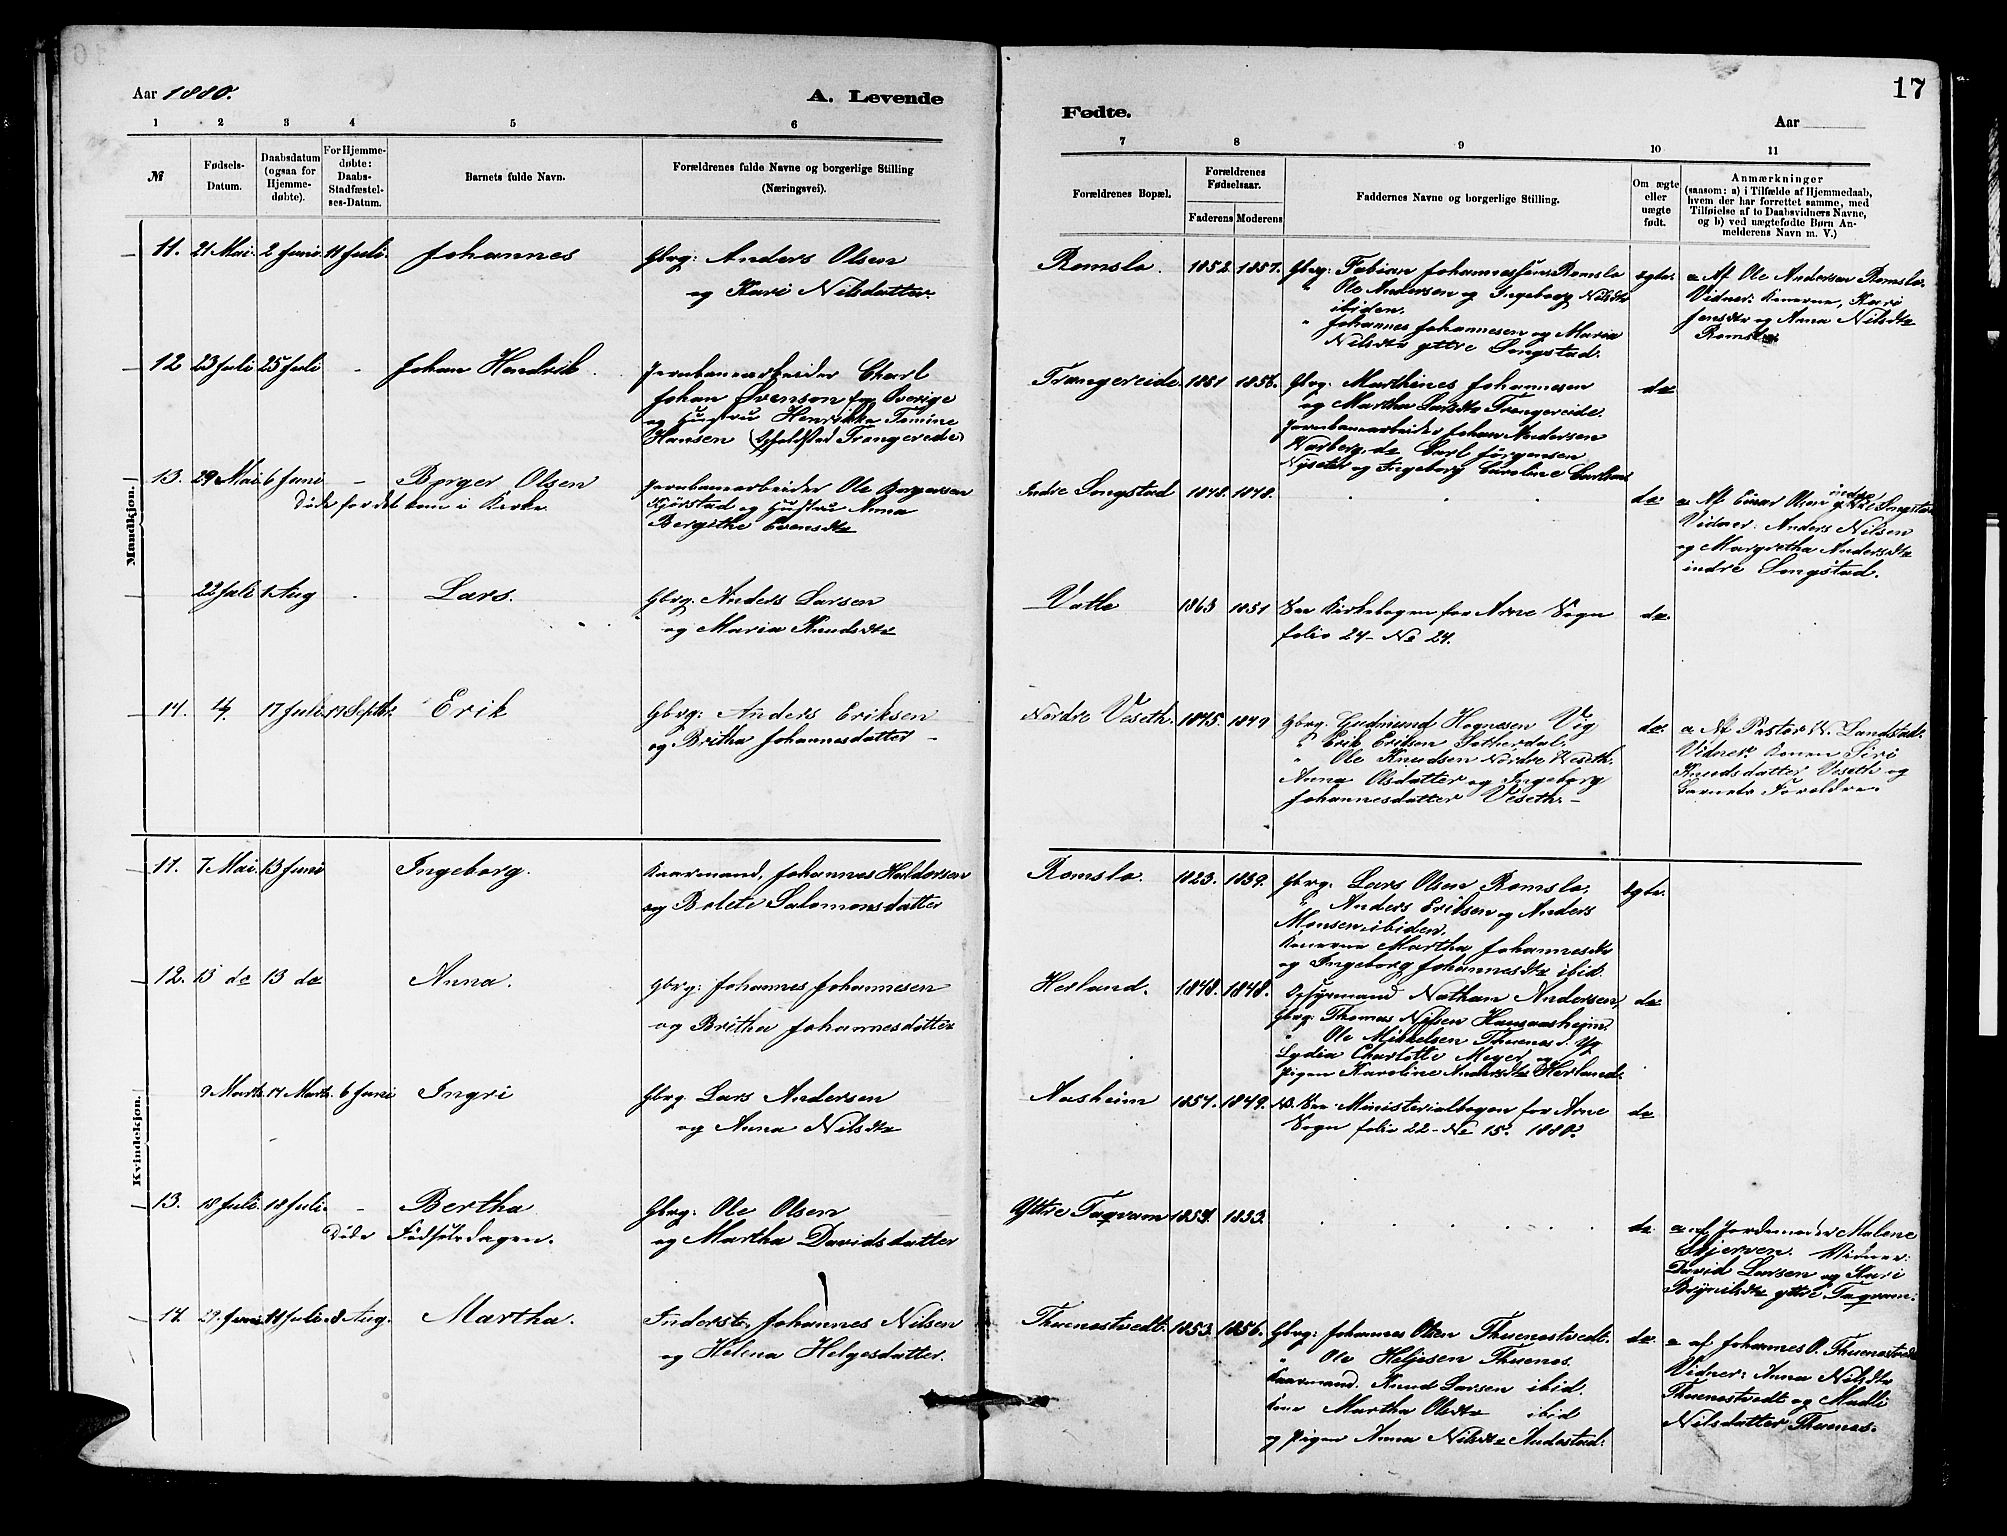 17
Aar 1880.
A. Levende
Fødte.
Aar
1 2 3 4 5 6
7 8 9 10 11
№
Fødsels-Datum.
Daabsdatum (ogsaa for Hjemme-døbte).
For Hjemme-døbte: Daabs-Stadfæstel-ses-Datum.
Barnets fulde Navn.
Forældrenes fulde Navne og borgerlige Stilling
(Næringsvei).
Forældrenes Bopæl.
Forældrenes Fødselsaar.
Faderens Moderens
Faddernes Navne og borgerlige Stilling.
Om ægte eller uægte født.
Anmærkninger
(saasom: a) i Tilfælde af Hjemmedaab,
hvem der har forrettet samme, med
Tilføielse af to Daabsvidners Navne,
og b) ved uægtefødte Børn An-
melderens Navn m. V.)
Mandkjøn.
11. 21 Mai 2 Juni 11 Juli. Johannes
Gbrg: Anders Olsen
og Kari Nilsdatter.
Romslo. 1852. 1857.
Gbrg: Fabian Johannessen Romslo
" Ole Andersen og Ingeborg Nilsdtr
ibiden.
" Johannes Johannesen og Maria
Nilsdtr yttre Songstad.
egte.
a Af Ole Andersen Romslo.
Vidner: Konerne, Kari
Jensdtr og Anna Nilsdtr
Romslo.
12 23 Juli 25 Juli - Johan Hendrik.
Jernbanearbeider Charl
Johan Svenson fra Sverige
og Hustru Henrikka Tomine
Hansen (Opholdsted Trangereide)
Trangereide. 1851 1858.
Gbrg: Marthines Johannesen
og Martha Larsdtr Trengereide.
Jernbanearbeider Johan Andersen
Warberg, do Carl Jørgensen
Nyseter og Ingeborg Caroline
do
13. 29 Mai 6 Juni - Borger Olsen
Døde før det kom i Kirke.
Jernbanearbeider Ole Borgersen
Kjørstad og Hustru Anna
Bergithe Evensdtr
Indre Songstad 1848. 1848.
do
a Af Einar Olsen indre Songstad
Vidner: Anders Nilsen
og Margretha Andersdtr
indre Songstad.
22 Juli 1 Aug - Lars.
Gbrg. Anders Larsen
og Maria Knudsdtr
Vatle 1863 1851
See Kirkebogen for Arne Sogn
folio 24 - No 24.
do.
14. 4/7 17 Juli 19 Septbr. Erik
Gbrg: Anders Eriksen
og Britha Johannesdatter -
Nordre Veseth. 1845. 1849
Gbrg. Gudmund Hognesen Vig
" Erik Eriksen Sætherdal.
" Ole Knudsen Nordre Veseth.
Anna Olsdatter og Ingeborg
Johannesdatter Veseth. -
do.
a Af Pastor W. Landstad.
Vidner. Konen Siri
Knudsdatter, Veseth og
Barnets Forældre.
Kvindekjøn.
11. 7 Mai. 13 Juni Ingeborg.
Kaarmand, Johannes Haldorsen
og Bolete Salomonsdatter
Romslo. 1823. 1839.
Gbrg: Lars Olsen Romslo.
" Anders Eriksen og Anders
Monsen ibiden.
Konerne Martha Johannesdtr
og Ingeborg Johannesdtr ibid.
egte.
12. 13 do 13 do Anna.
Gbrg: Johannes Johannesen
og Britha Johannesdatter
Herland. 1848. 1848.
Nathan Andersen,
Gbrg: Thomas Nilsen
" Ole Mikkelsen Thuenes.
Lydia Charlotte Meyer og
pigen Karoline Andersdtr Herland.
do
9 Marts. 14 Marts. 6 Juni Ingri
Gbrg Lars Andersen
og Anna Nilsdtr
Aasheim 1854. 1849.
NB. See Ministerialbogen for Arne
Sogn folio 22 - No 15. 1880.
do
13. 18 Juli. 18 Juli. - Bertha
Døde Fødselsdagen.
Gbrg: Ole Olsen
og Martha Davidsdatter
Yttre Taqvam 1853.
do.
a. af Jordemoder Malene
Skjerven. Vidner:
David Larsen og Kari
Brynildsdtr yttre Taqvam.
14. 29 Juni 11 Juli. 8 Aug. Martha.
Inderst. Johannes Nilsen
og Helena Helgesdatter.
Thuenestvedt. 1853. 1856.
Gbrg: Johannes Olsen Thuenestvedt.
" Ole Heljesen Thuenes.
Kaarmand. Knud Larsen ibid.
Kone Martha Olsdtr ibid
og pigen Anna Nilsdtr Andestad.
do.
a af Johannes O. Thuenestvedt
Vidner: Anna Nilsdtr
Thuenestvedt og Madli
Nilsdatter, Thuenes.